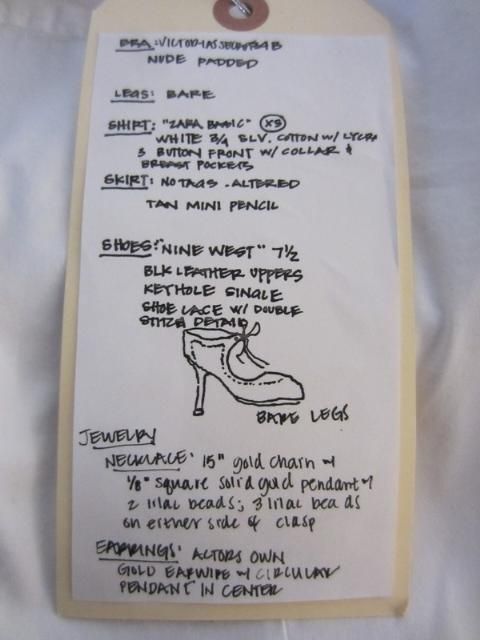 BRA: VICTORIAS SECRET 34B
NUDE PADDED
LEGS: BARE
SHIRT: "ZARA BASIC" XS
WHITE 3/4 SLV. COTTON W/ LYCRA
3 BUTTON FRONT W/ COLLAR &
BREAST POCKETS
SKIRT: NO TAGS - ALTERED
TAN MINI PENCIL
SHOES: "NINE WEST" 7½
BLK LEATHER UPPERS
KEYHOLE SINGLE
SHOE LACE W/ DOUBLE
STITCH DETAIL
BARE LEGS
JEWELRY
NECKLACE: 15" gold chain w/
1/8" square solid gold pendant w/
2 lilac beads; 3 lilac beads
on either side of clasp
EARRINGS: ACTORS OWN
GOLD EARWIRE w/ CIRCULAR
PENDANT IN CENTER